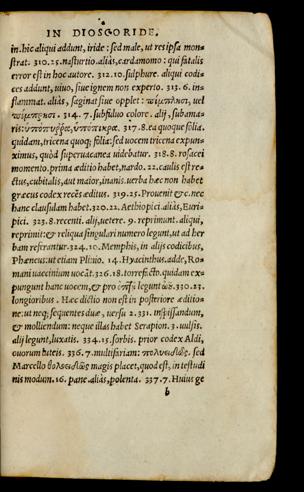 IN DIOSCORIDE.
in. hic aliqui addunt, iride: sed male, ut res ipsa mon=
strat. 310.25. nasturtio. aliâs, cardamomo: qui fatalis
error est in hoc autore. 312.10. sulphure. aliqui codi=
ces addunt, uiuo, siue ignem non experto. 313.6. in=
flammat. aliàs, saginat siue opplet: πίμπλησι, uel
πίμπρησι. 314.7. subfiluo colore. alij, subama=
ris: 317.8. ea quoque folia.
quidam, tricena quoq; folia: sed uocem tricena expun=
ximus, quòd superuacanea uidebatur. 318.8. rosacei
momento. prima æditio habet, nardo. 22. caulis est re=
ctus, cubitalis, aut maior, inanis. uerba hæc non habet
græcus codex recēs æditus. 319.25. Prouenit &c. nec
hanc clausulam habet. 320.22. Aethiopici. aliàs, Euri=
pici. 323.8. recenti. alij, uetere. 9. reprimunt. aliqui,
reprimit: & reliqua singulari numero legunt, ut ad her
bam referantur. 324.10. Memphis, in alijs codicibus,
Phæneus: ut etiam Plinio. 14. Hyacinthus. adde, Ro=
mani uaccinium uocāt. 326.18. torrefacto. quidam ex=
pungunt hanc uocem, & pro legunt 330.23.
longioribus. Hæc dictio non est in posteriore æditio=
ne: ut neq; sequentes duæ, uersu 2. 331. inspissandum,
& molliendum: neque illas habet Serapion. 3. uulsis.
alij legunt, luxatis. 334.15. sorbis. prior codex Aldi,
ouorum luteis. 336.7. multifariam: πολυειδῶς. sed
Marcello βολοειδῶς magis placet, quod est, in testudi
nis modum. 16. pane. aliàs, polenta. 337.7. Huius ge
b